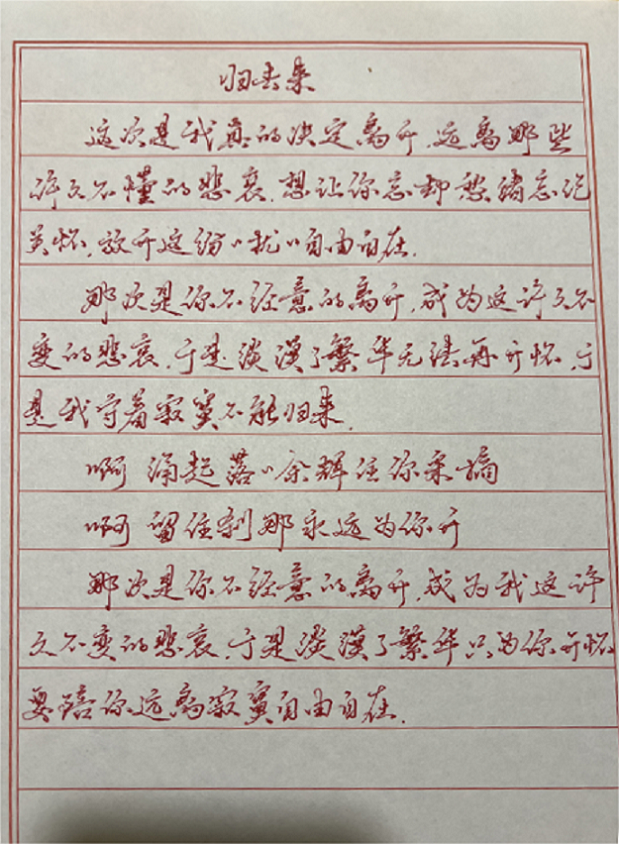 归去来
这次是我真的决定离开,远离那些
许久不懂的悲哀,想让你忘却愁绪忘记
关怀,放开这纷"扰"自由自在.
那次是你不经意的离开,成为这许久不
变的悲哀,于是淡漠了繁华无法再开怀,于
是我守着寂寞不能归来.
啊 涌起落"余辉任你采摘
啊 留住刹那永远为你开
那次是你不经意的离开,成为我这许
久不变的悲哀,于是淡漠了繁华只为你开怀
要陪你远离寂寞自由自在.